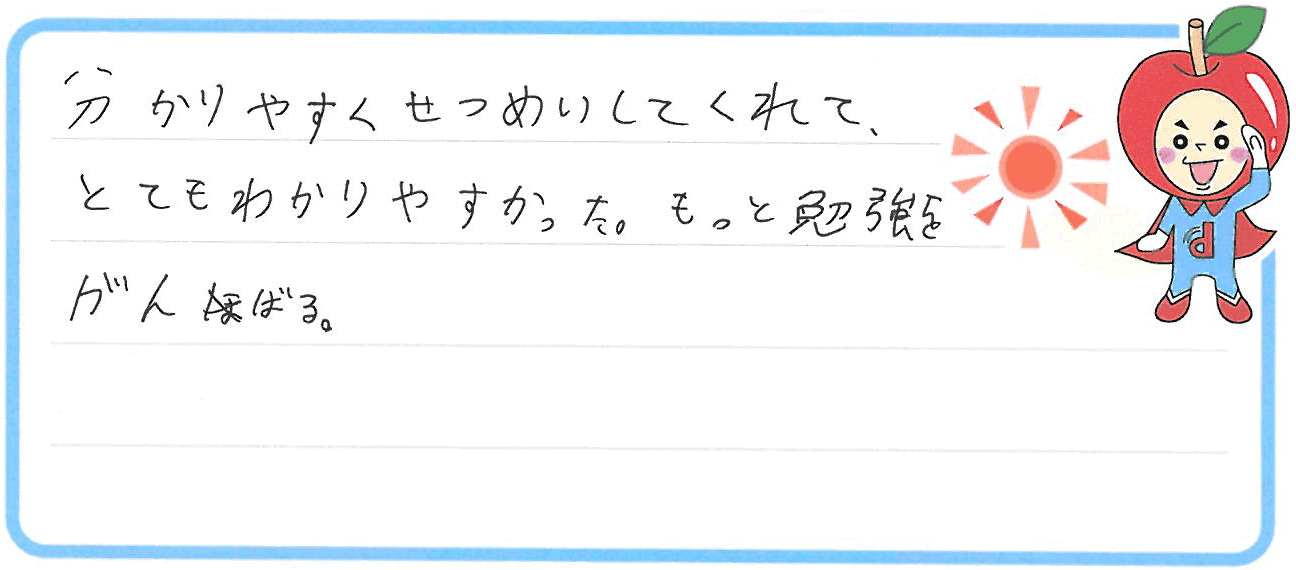 分かりやすくせつめいしてくれて、
とてもわかりやすかった。もっと勉強を
がんばる。